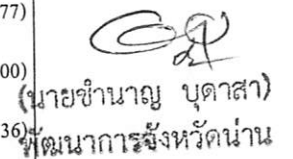 77)
00)
(นายชำนาญ บุดาสา)
36)
พัฒนาการจังหวัดน่าน